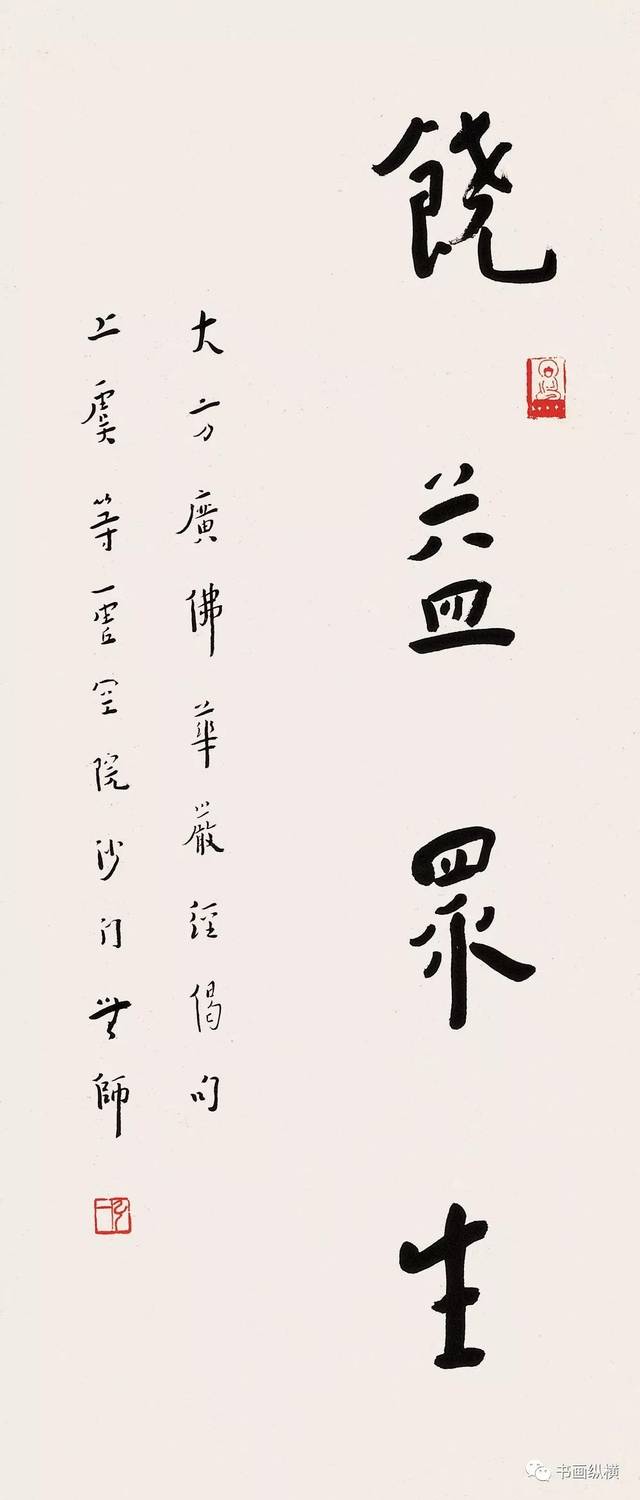 饒益眾生
大方廣佛華嚴經偈句
上虞等虛空院沙门無師
弘一
书画纵横